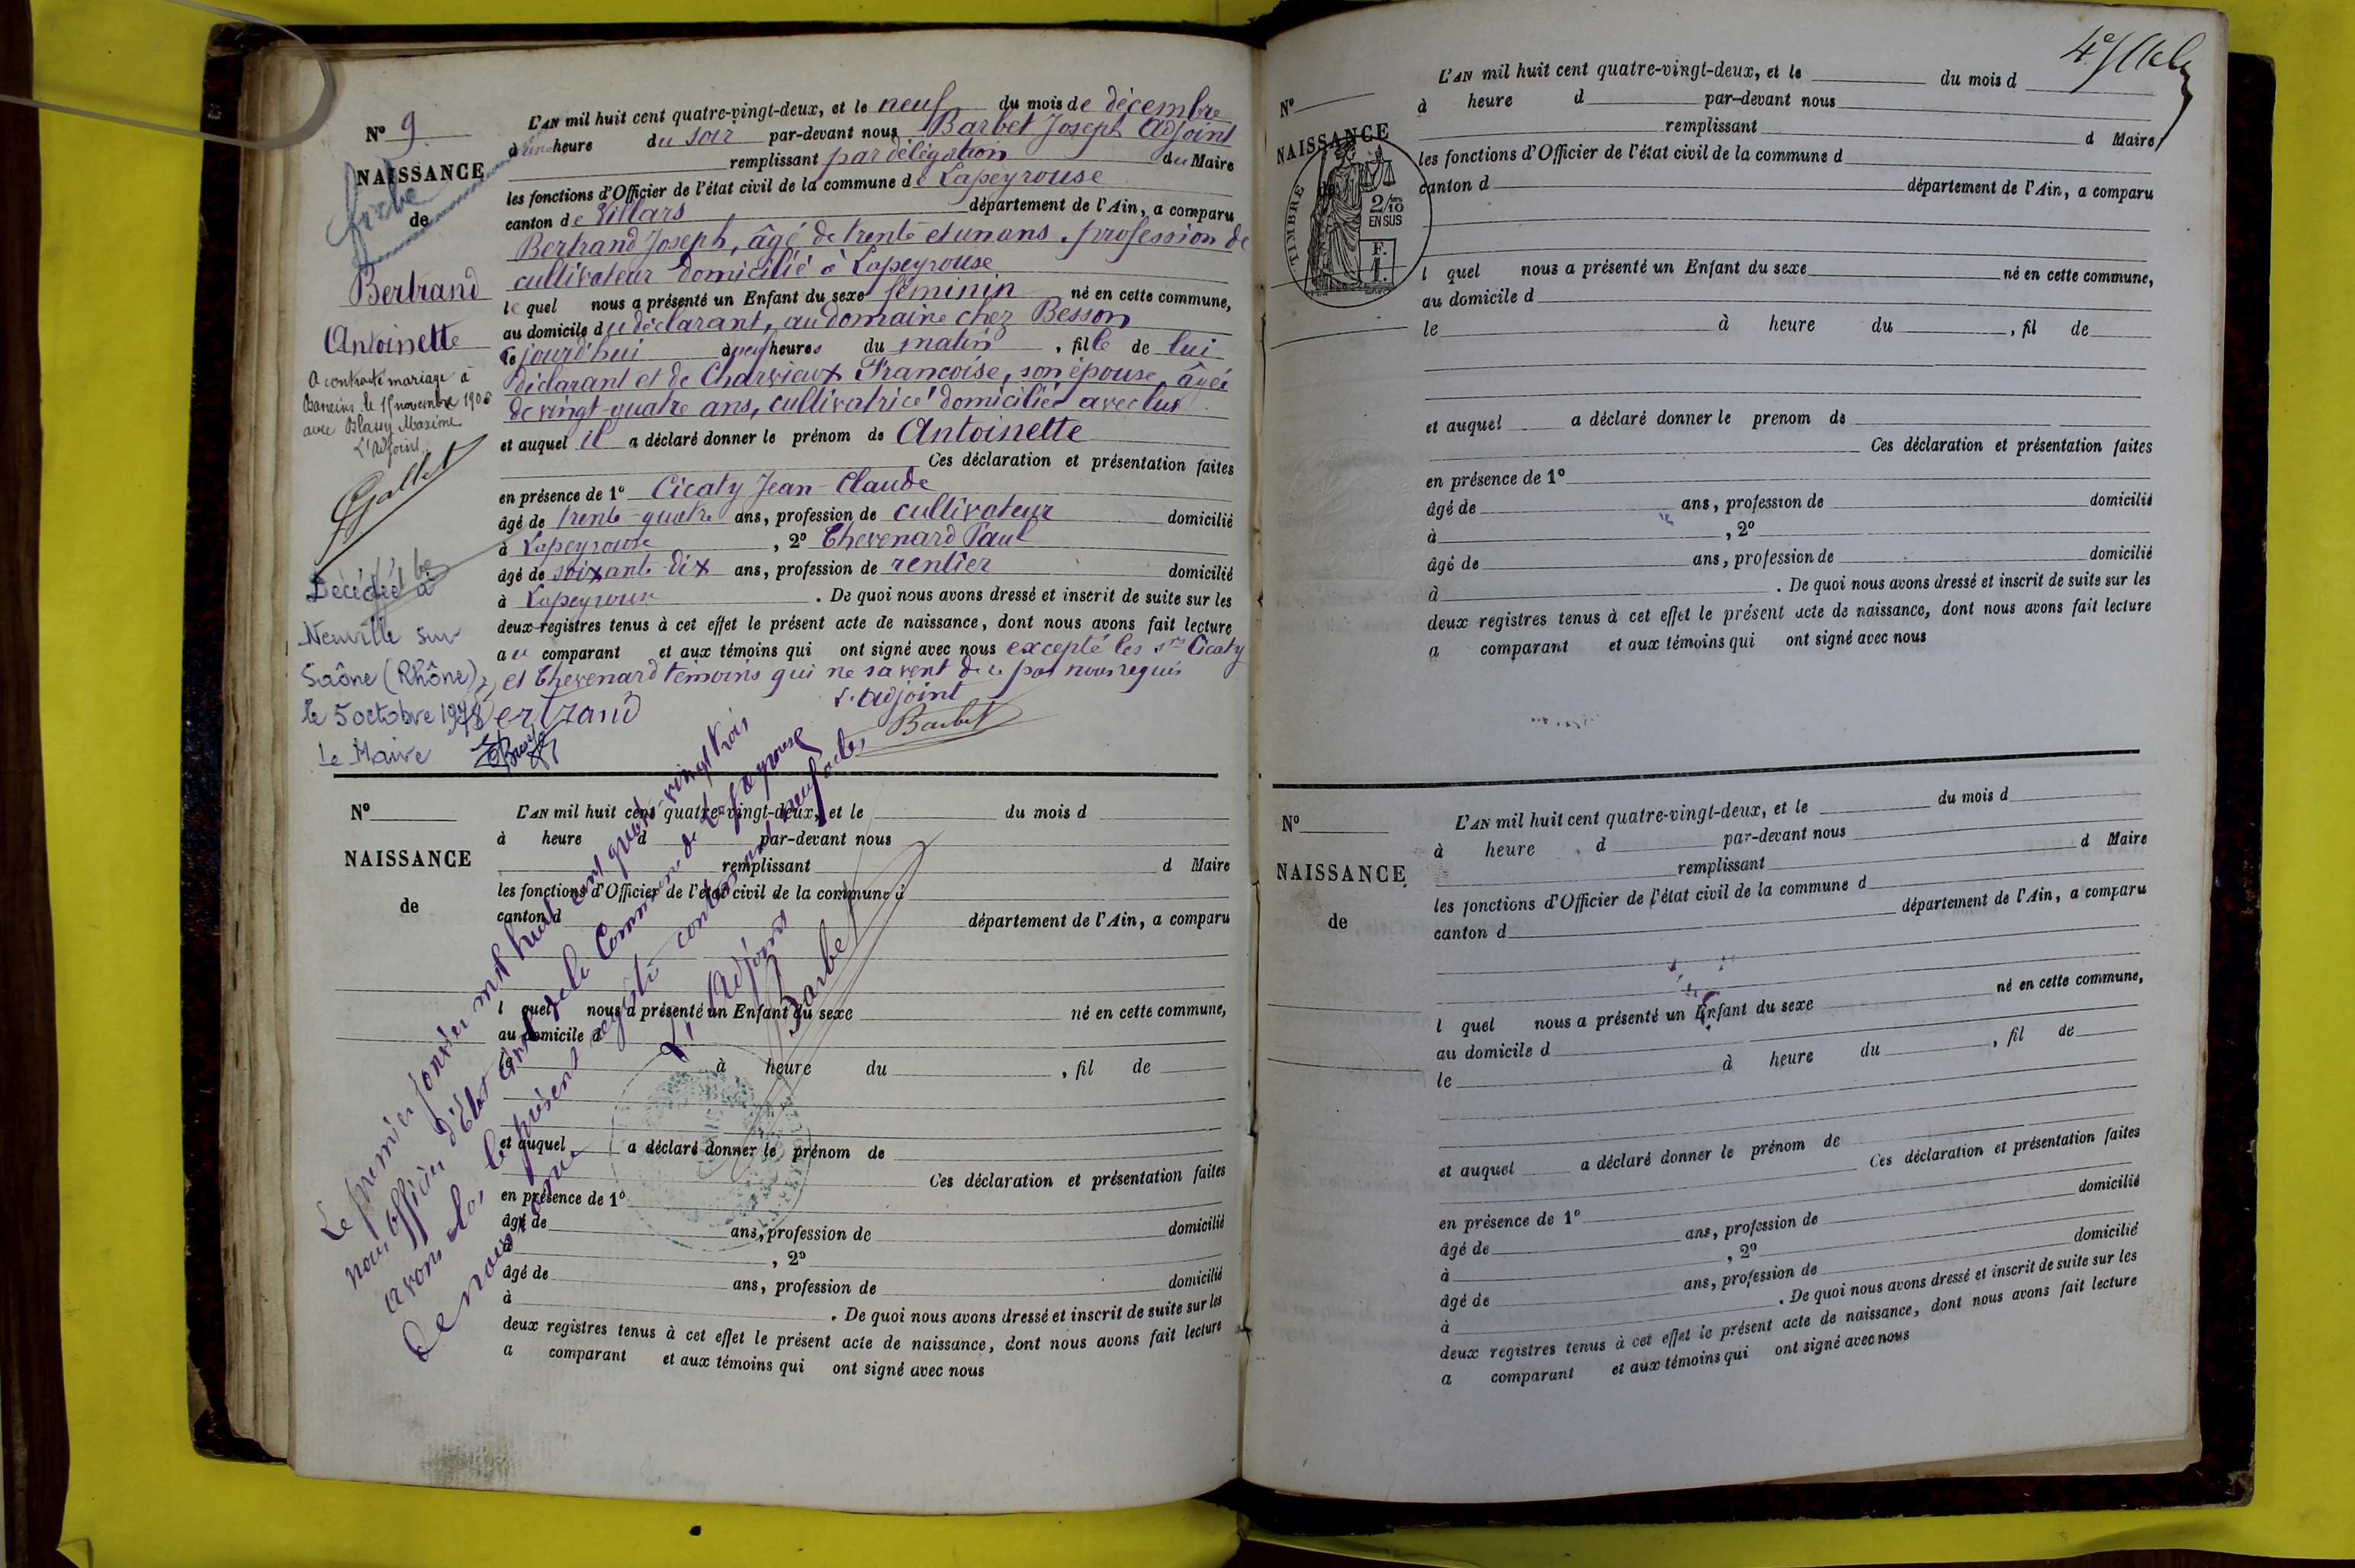 N° 9
NAISSANCE
de
Bertrand
Antoinette
A contracté mariage à
le 15 novembre 1908
avec Maxime
L'Adjoint
Gallet
Décédée à
Neuville sur
Saône (Rhône)
le 5 octobre 1978
Le Maire
L'AN mil huit cent quatre-vingt-deux, et le neuf du mois de décembre
à une heure du soir par-devant nous Barbet Joseph Adjoint
remplissant par délégation du Maire
les fonctions d'Officier de l'état civil de la commune de Lapeyrouse
canton de Villars département de l'Ain, a comparu
Bertrand Joseph, âgé de trente et un ans, profession de
cultivateur domicilié à Lapeyrouse
lequel nous a présenté un Enfant du sexe féminin né en cette commune,
au domicile du déclarant, au domaine chez Besson
le jourd'hui à neuf heures du matin, fille de lui
déclarant et de Charvieux Francoise, son épouse, âgée
de vingt-quatre ans, cultivatrice domiciliée avec lui
et auquel il a déclaré donner le prénom de Antoinette
Ces déclaration et présentation faites
en présence de 1° Cicaty Jean-Claude
âgé de trente-quatre ans, profession de cultivateur domicilié
à Lapeyrouse, 2° Thevenard Paul
âgé de soixante-dix ans, profession de rentier domicilié
à Lapeyrouse. De quoi nous avons dressé et inscrit de suite sur les
deux registres tenus à cet effet le présent acte de naissance, dont nous avons fait lecture
au comparant et aux témoins qui ont signé avec nous excepté les srs Cicaty
et Thevenard témoins qui ne savent de ce par nous requis
L'adjoint
Bertrand
Barbet
N°
NAISSANCE
de
L'AN mil huit cent quatre-vingt-deux, et le du mois d
à heure d par-devant nous
remplissant d Maire
les fonctions d'Officier de l'état civil de la commune d
canton d département de l'Ain, a comparu
l quel nous a présenté un Enfant du sexe né en cette commune,
au domicile d
le à heure du , fil de
et auquel a déclaré donner le prénom de
Ces déclaration et présentation faites
en présence de 1°
âgé de ans, profession de domicilié
à , 2°
âgé de ans, profession de domicilié
à . De quoi nous avons dressé et inscrit de suite sur les
deux registres tenus à cet effet le présent acte de naissance, dont nous avons fait lecture
a comparant et aux témoins qui ont signé avec nous
Le premier janvier mil huit cent quatre-vingt trois
nous officier d'Etat civil de la Commune de Lapeyrouse
avons clos le présent registre contenant neuf actes
de naissance
L'Adjoint
Barbet
N°
NAISSANCE
TIMBRE
2/10
EN SUS
F.
1.
L'AN mil huit cent quatre-vingt-deux, et le du mois d
à heure d par-devant nous
remplissant d Maire
les fonctions d'Officier de l'état civil de la commune d
canton d département de l'Ain, a comparu
l quel nous a présenté un Enfant du sexe né en cette commune,
au domicile d
le à heure du , fil de
et auquel a déclaré donner le prenom de
Ces déclaration et présentation faites
en présence de 1°
âgé de ans, profession de domicilié
à , 2°
âgé de ans, profession de domicilié
à . De quoi nous avons dressé et inscrit de suite sur les
deux registres tenus à cet effet le présent acte de naissance, dont nous avons fait lecture
a comparant et aux témoins qui ont signé avec nous
N°
NAISSANCE
de
L'AN mil huit cent quatre-vingt-deux, et le du mois d
à heure d par-devant nous
remplissant d Maire
les fonctions d'Officier de l'état civil de la commune d
canton d département de l'Ain, a comparu
l quel nous a présenté un Enfant du sexe né en cette commune,
au domicile d
le à heure du , fil de
et auquel a déclaré donner le prénom de
Ces déclaration et présentation faites
en présence de 1°
âgé de ans, profession de domicilié
à , 2°
âgé de ans, profession de domicilié
à . De quoi nous avons dressé et inscrit de suite sur les
deux registres tenus à cet effet le présent acte de naissance, dont nous avons fait lecture
a comparant et aux témoins qui ont signé avec nous